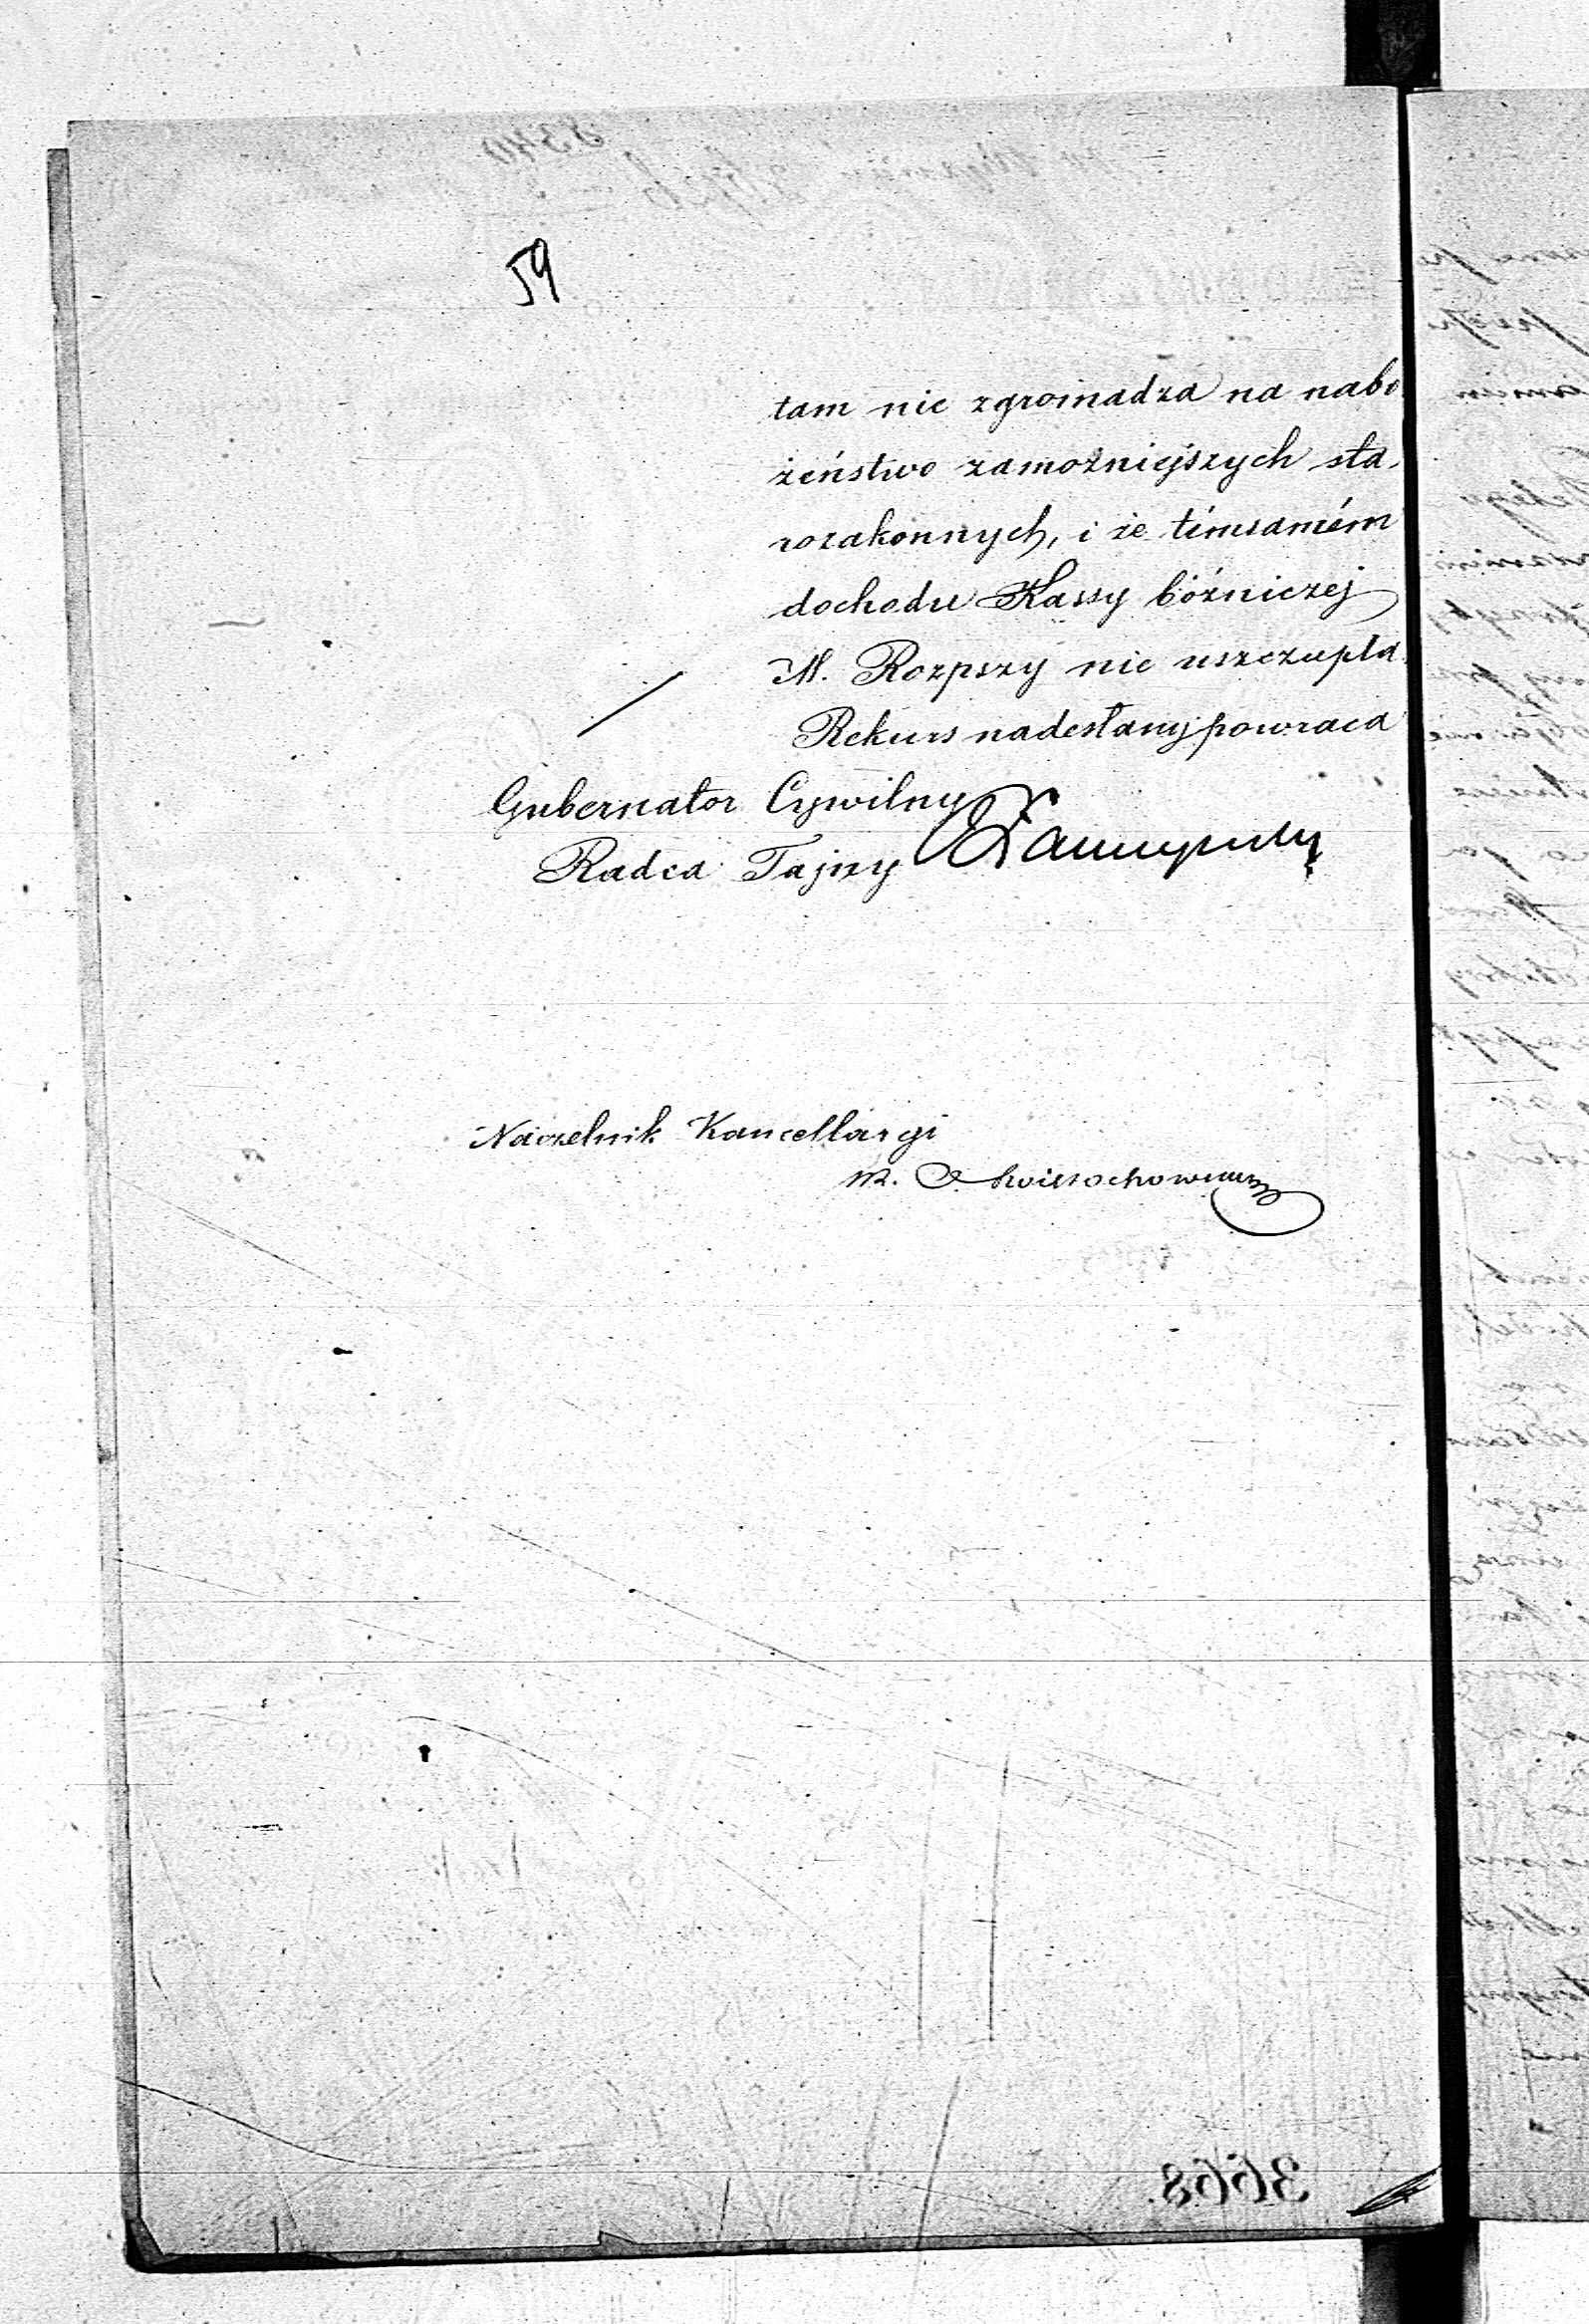 59
tam nie zgromadza na nabo
żeństwo zamożniejszych sta,
rozakonnych, i że témsamém
dochodu Kassy bóżniczej
M. Rozpszy nie uszczupla.
Rekurs nadesłany powraca
Gubernator Cywilny
Radca Tajny
Naczelnik Kancellaryi
3668